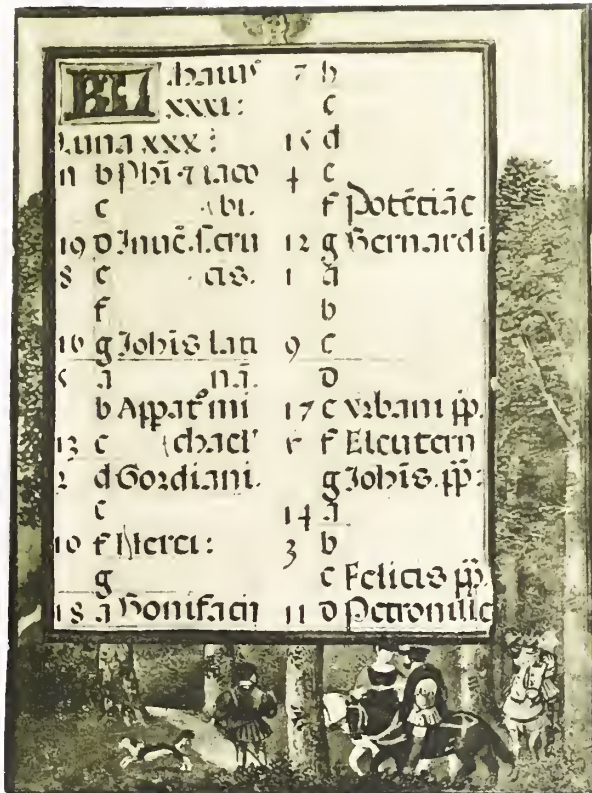 KL
xxxi:
Luna xxx:
11 b Phī. 7 iaco
c bi.
19 d Inuē.s.cru
8 e cis.
f
16 g Johīs lati
5 a nā.
b Apparº mi
13 c chael'
2 d Gordiani.
e
10 f Nerei:
g
18 a Bonifacii
7 b
c
15 d
4 e
f Potētiāe
12 g Bernardi
1 a
b
9 c
d
17 e Vrbani pp̄.
6 f Eleuterii
g Johīs.pp̄:
14 a
3 b
c Felicis pp̄.
11 d Petronille